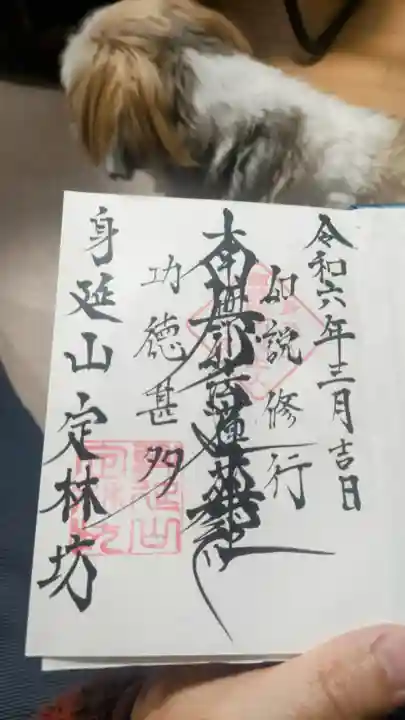 令和六年三月吉日
如説修行
南無妙法蓮華経
功徳甚多
身延山定林坊